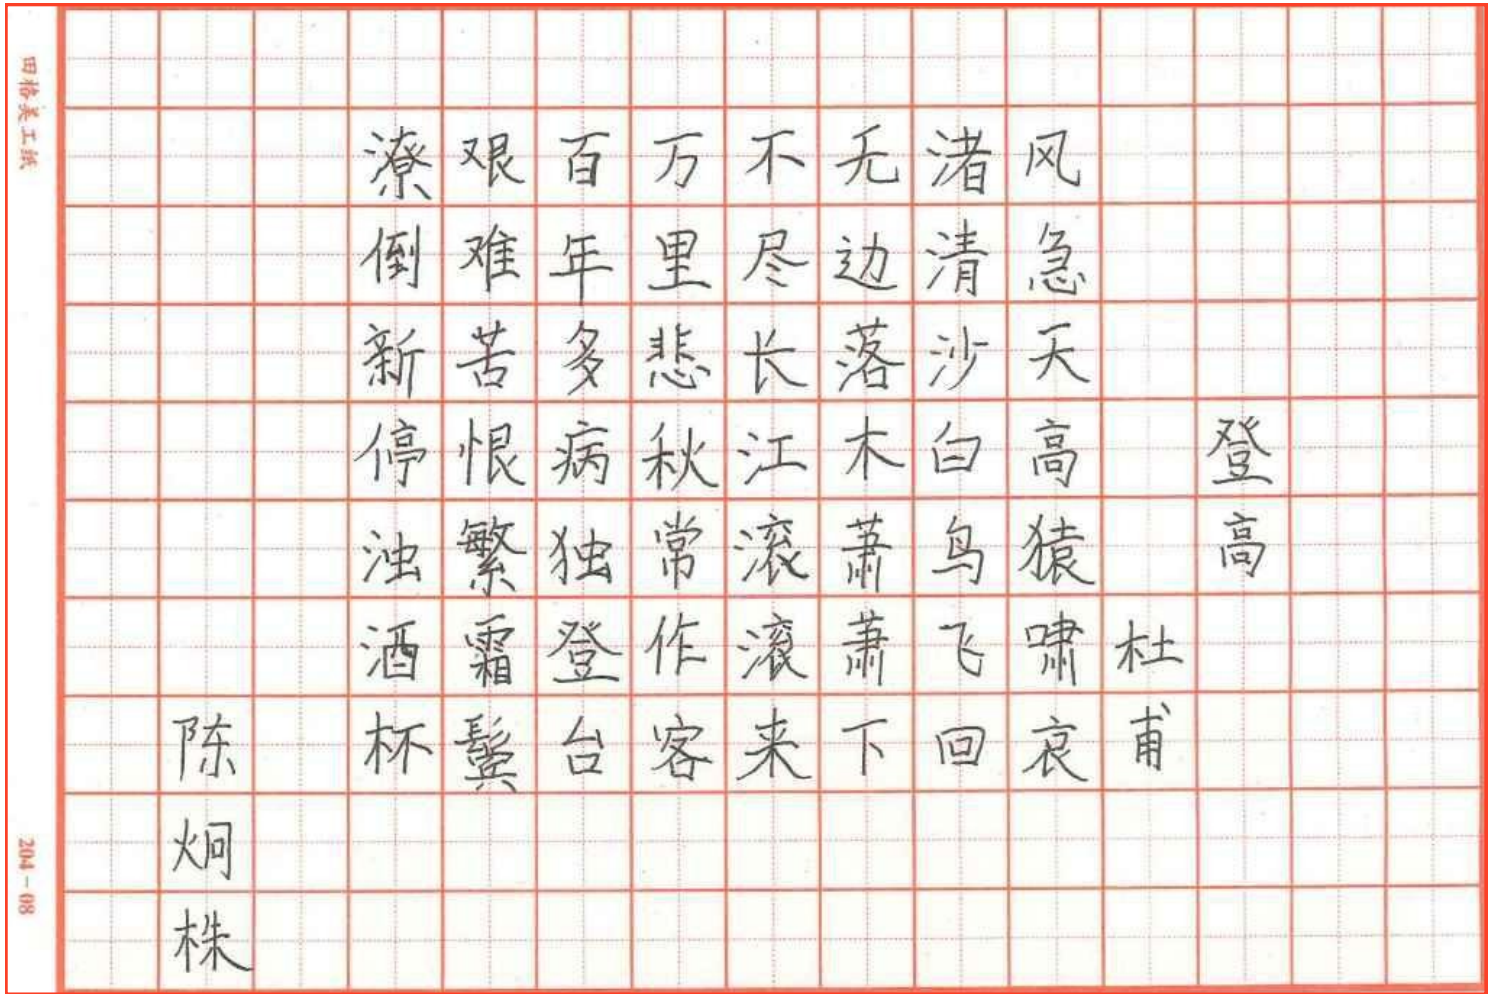 登高
杜甫
风急天高猿啸哀
渚清沙白鸟飞回
无边落木萧萧下
不尽长江滚滚来
万里悲秋常作客
百年多病独登台
艰难苦恨繁霜鬓
潦倒新停浊酒杯
陈炯株
田格美工纸
204-08